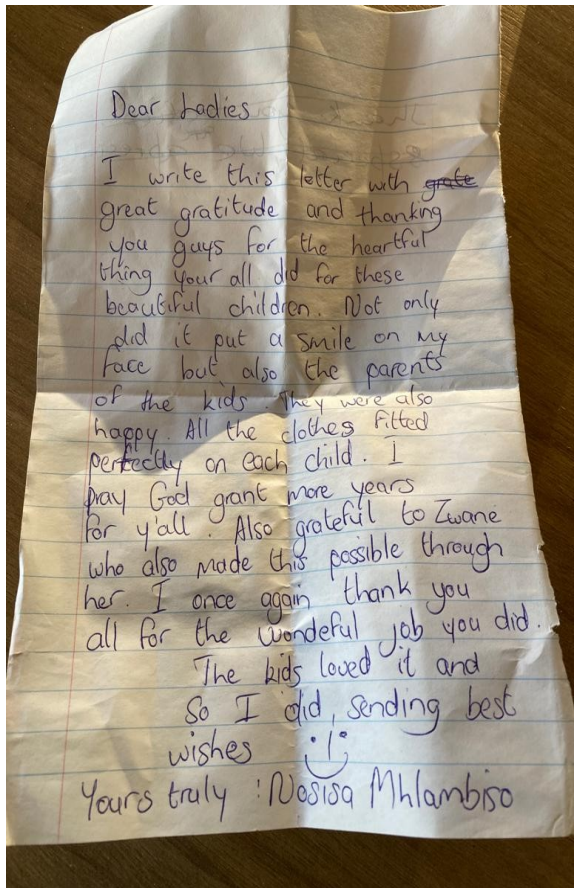 Dear Ladies
I write this letter with grate
great gratitude and thanking
you guys for the heartful
thing your all did for these
beautiful children. Not only
did it put a smile on my
face but also the parents
of the kids. They were also
happy. All the clothes fitted
perfectly on each child. I
pray God grant more years
for y'all. Also grateful to Zwane
who also made this possible through
her. I once again thank you
all for the wondeful job you did.
The kids loved it and
So I did, sending best
wishes
Yours truly : Nosisa Mhlambiso